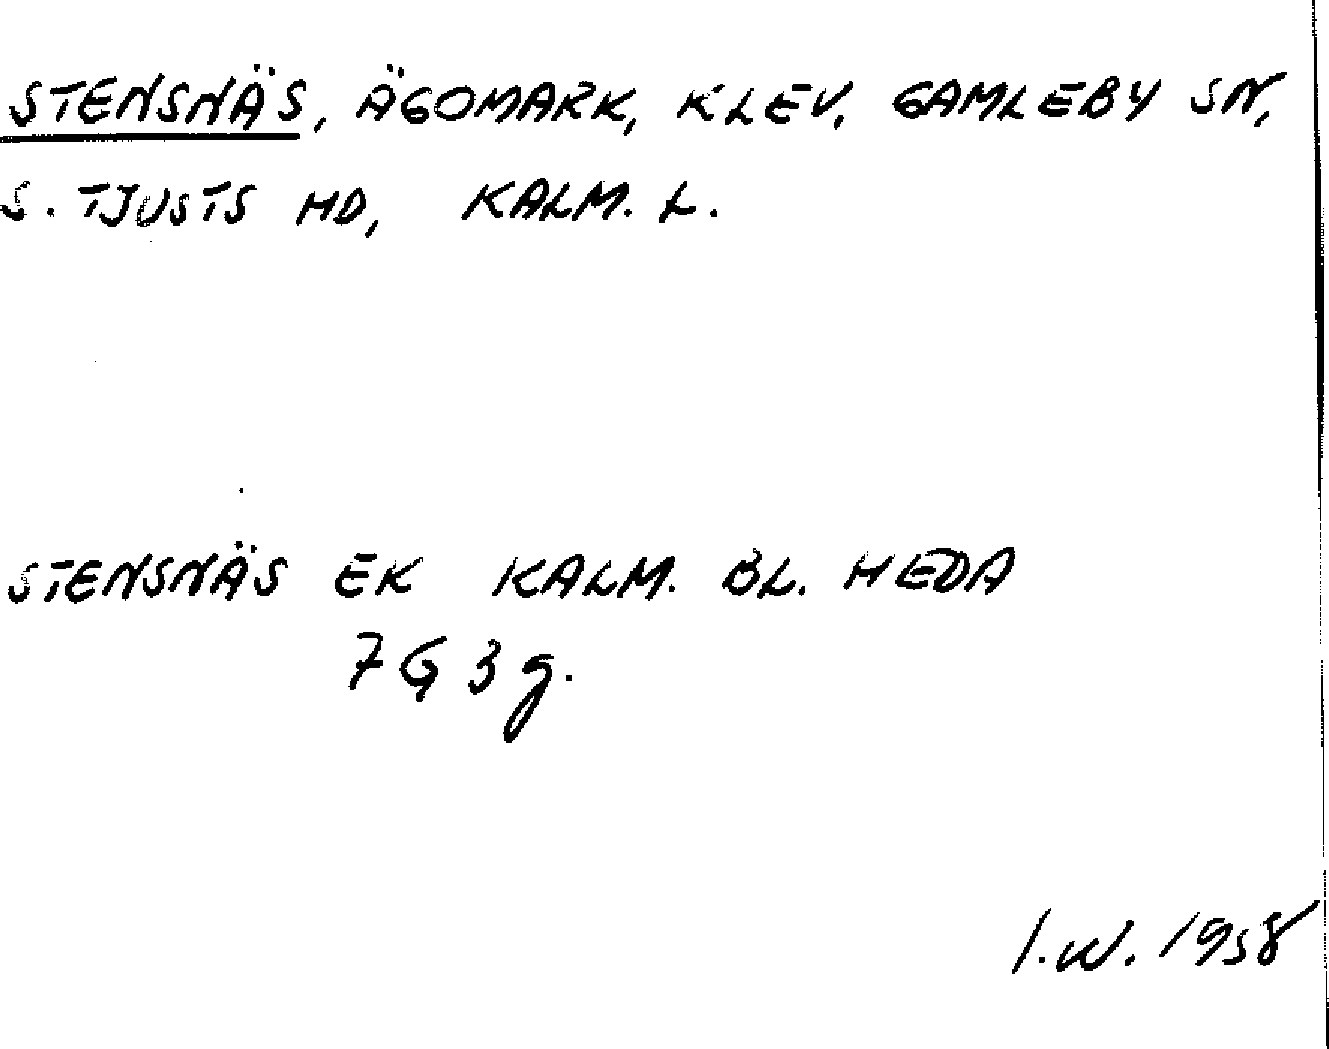 STENSNÄS, ÄGOMARK, KLEV, GAMLEBY SN,
S. TJUSTS HD, KALM. L.
STENSNÄS EK KALM. BL. HEDA
7G 3g.
I.W. 1958